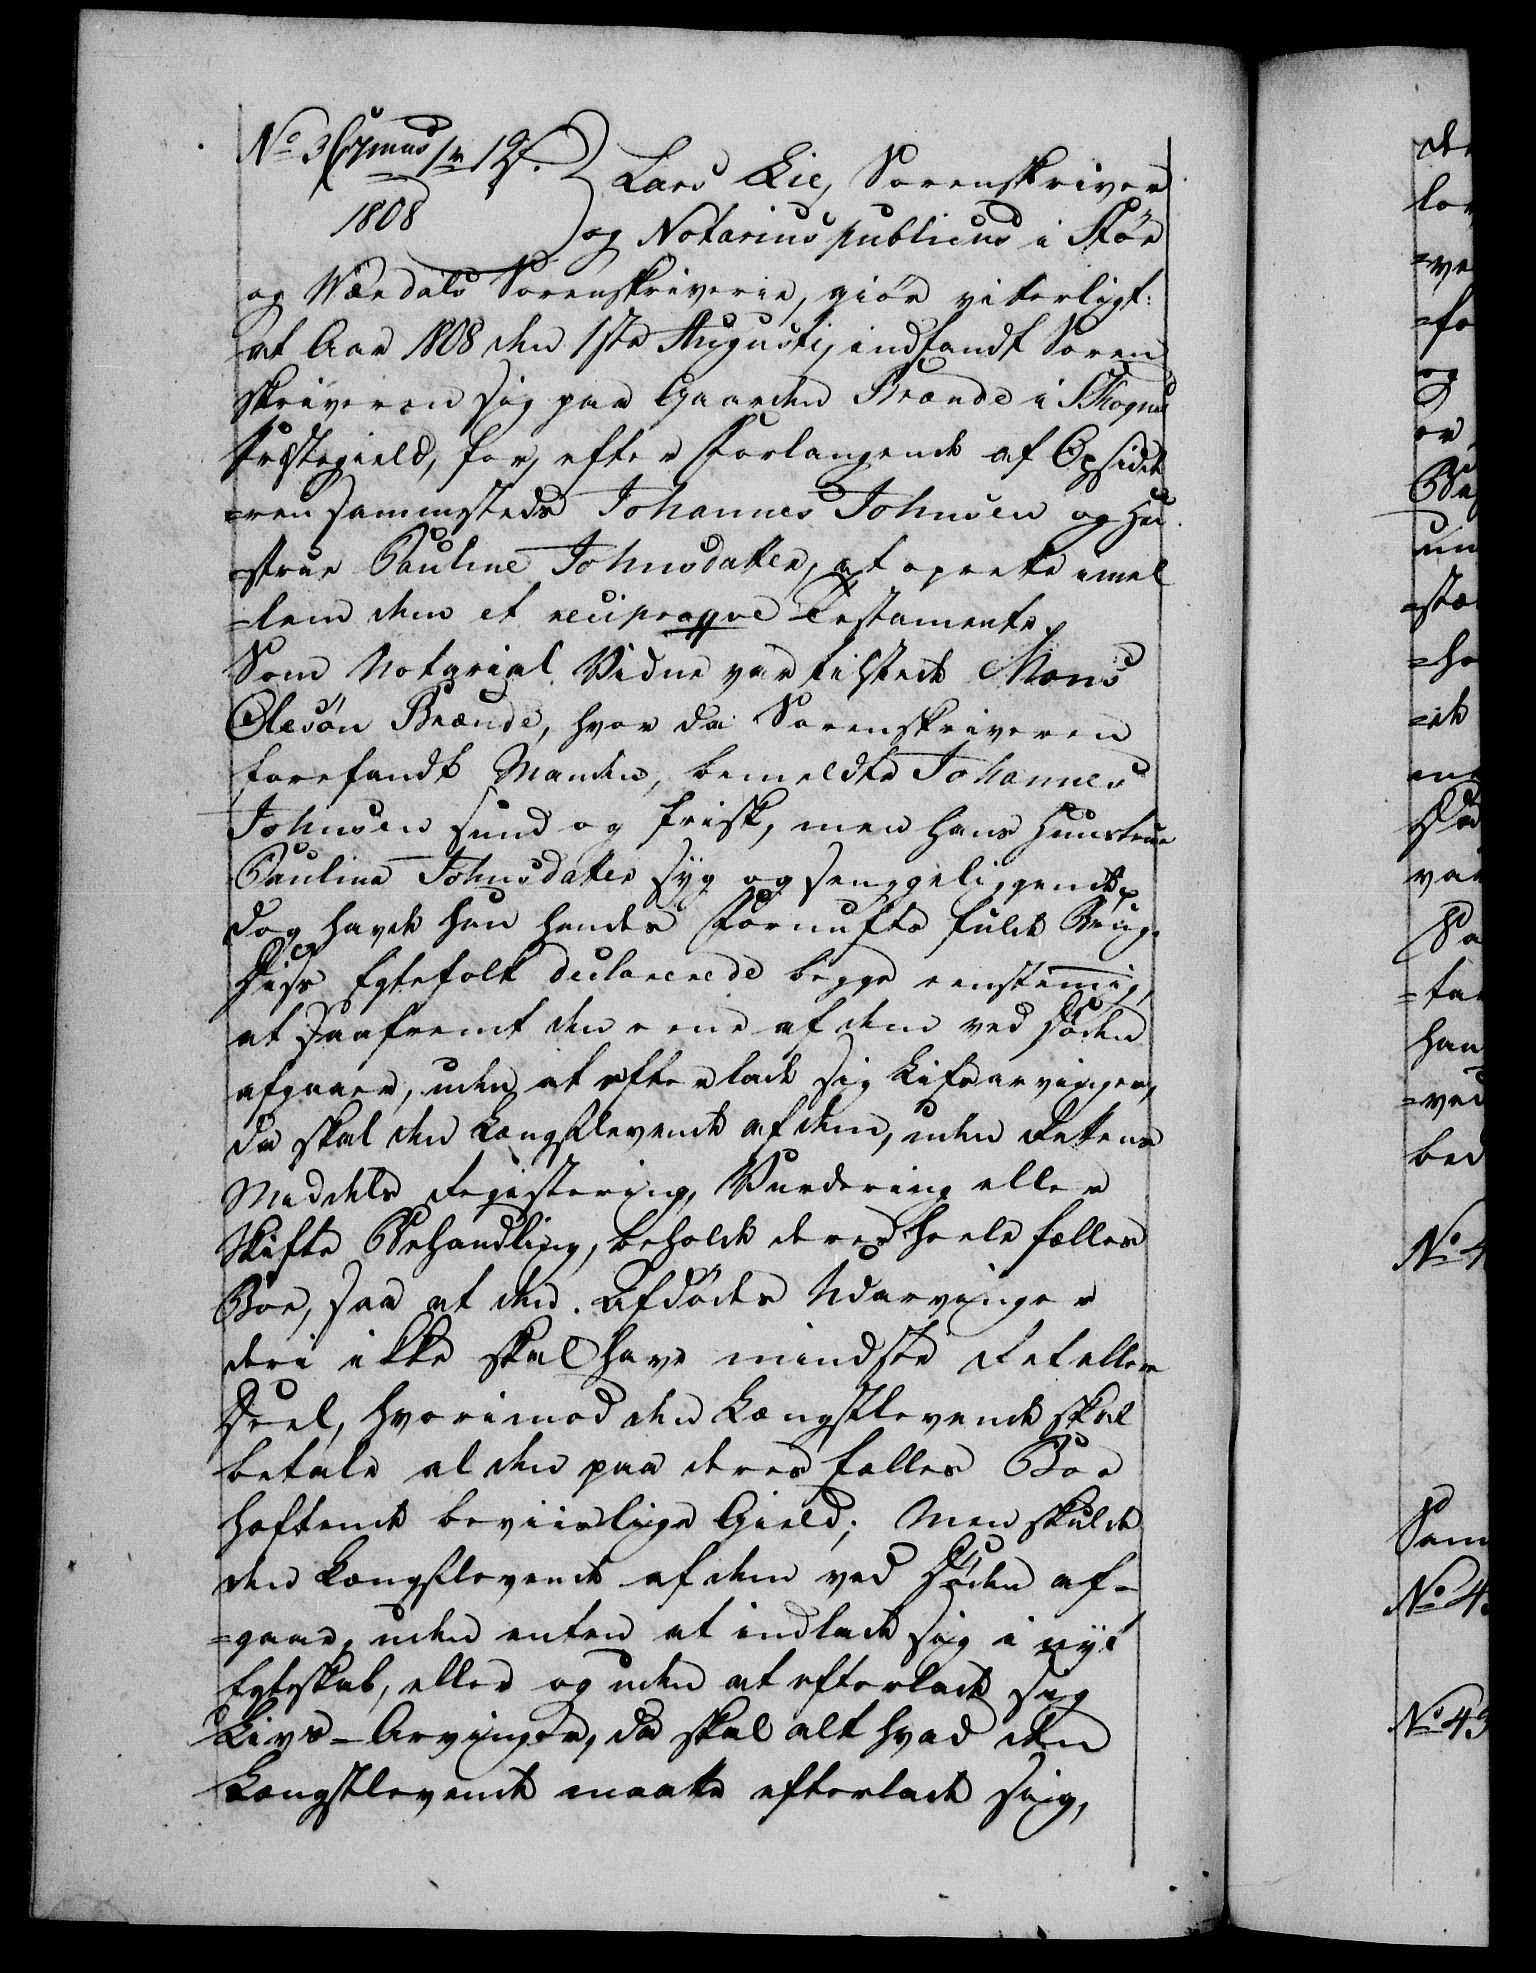 No 3
1808
Lars Lie, Sorenskriver
og Notarius publicus i Stör
og Værdals Sorenskriverie, giör vitterligt:
at Aar 1808 den 1ste Augusti, indfandt Soren
skriveren sig paa Gaarden Brænde i Skogns
Præstegield, for, efter Forlangende af Opsidde
=ren sammesteds Johannes Johnsen og Hu
=strue Pauline Johnsdatter, at oprette imel
=lem dem et reciproqve Testamente.
Som Notarial Vidne var tilstede Mons
Olesön Brænde, hvor da Sorenskriveren
forefandt Manden, bemeldte Johannes
Johnsen sund og frisk, men hans Huustrue
Paulina Johnsdatter syg og senggeliggende,
dog havde hun hendes Fornufts fulde Brug.
Disse Egtefolk declarerede begge eenstemig,
at saafremt den eene af dem ved Döden
afgaaer, uden at efterlade sig Lifsarvinger,
da skal den Længstlevende af dem, uden Rettens
Middels Registering, Vurdering eller
Skifte Behandling, beholde deres heele fælles
Boe, saa at den Afdödes Udarvinger
deri ikke skal have mindste Ret eller
Deel, hvorimod den Længstlevende skal
betale al den paa deres fælles Boe
heftende beviislige Gield; Men skulde
den Længstlevende af dem ved Döden af-
=gaae, uden enten at indlade sig i nyt
Egteskab, eller og uden at efterlade sig
Livs-Arvinger, da skal alt hvad den
Længstlevende maatte efterlade sig,